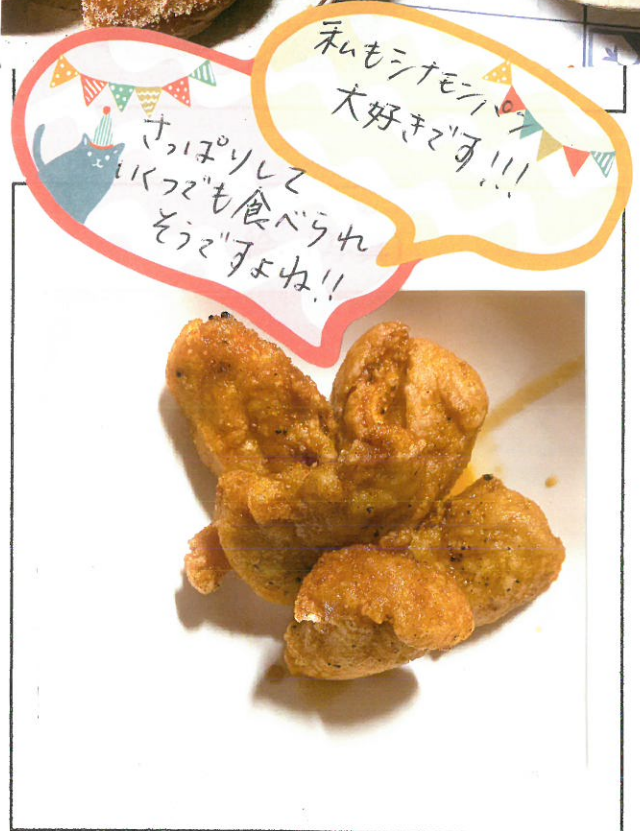 私もシナモンパン
大好きです!!!
さっぱりして
いくつでも食べられ
そうですよね!!